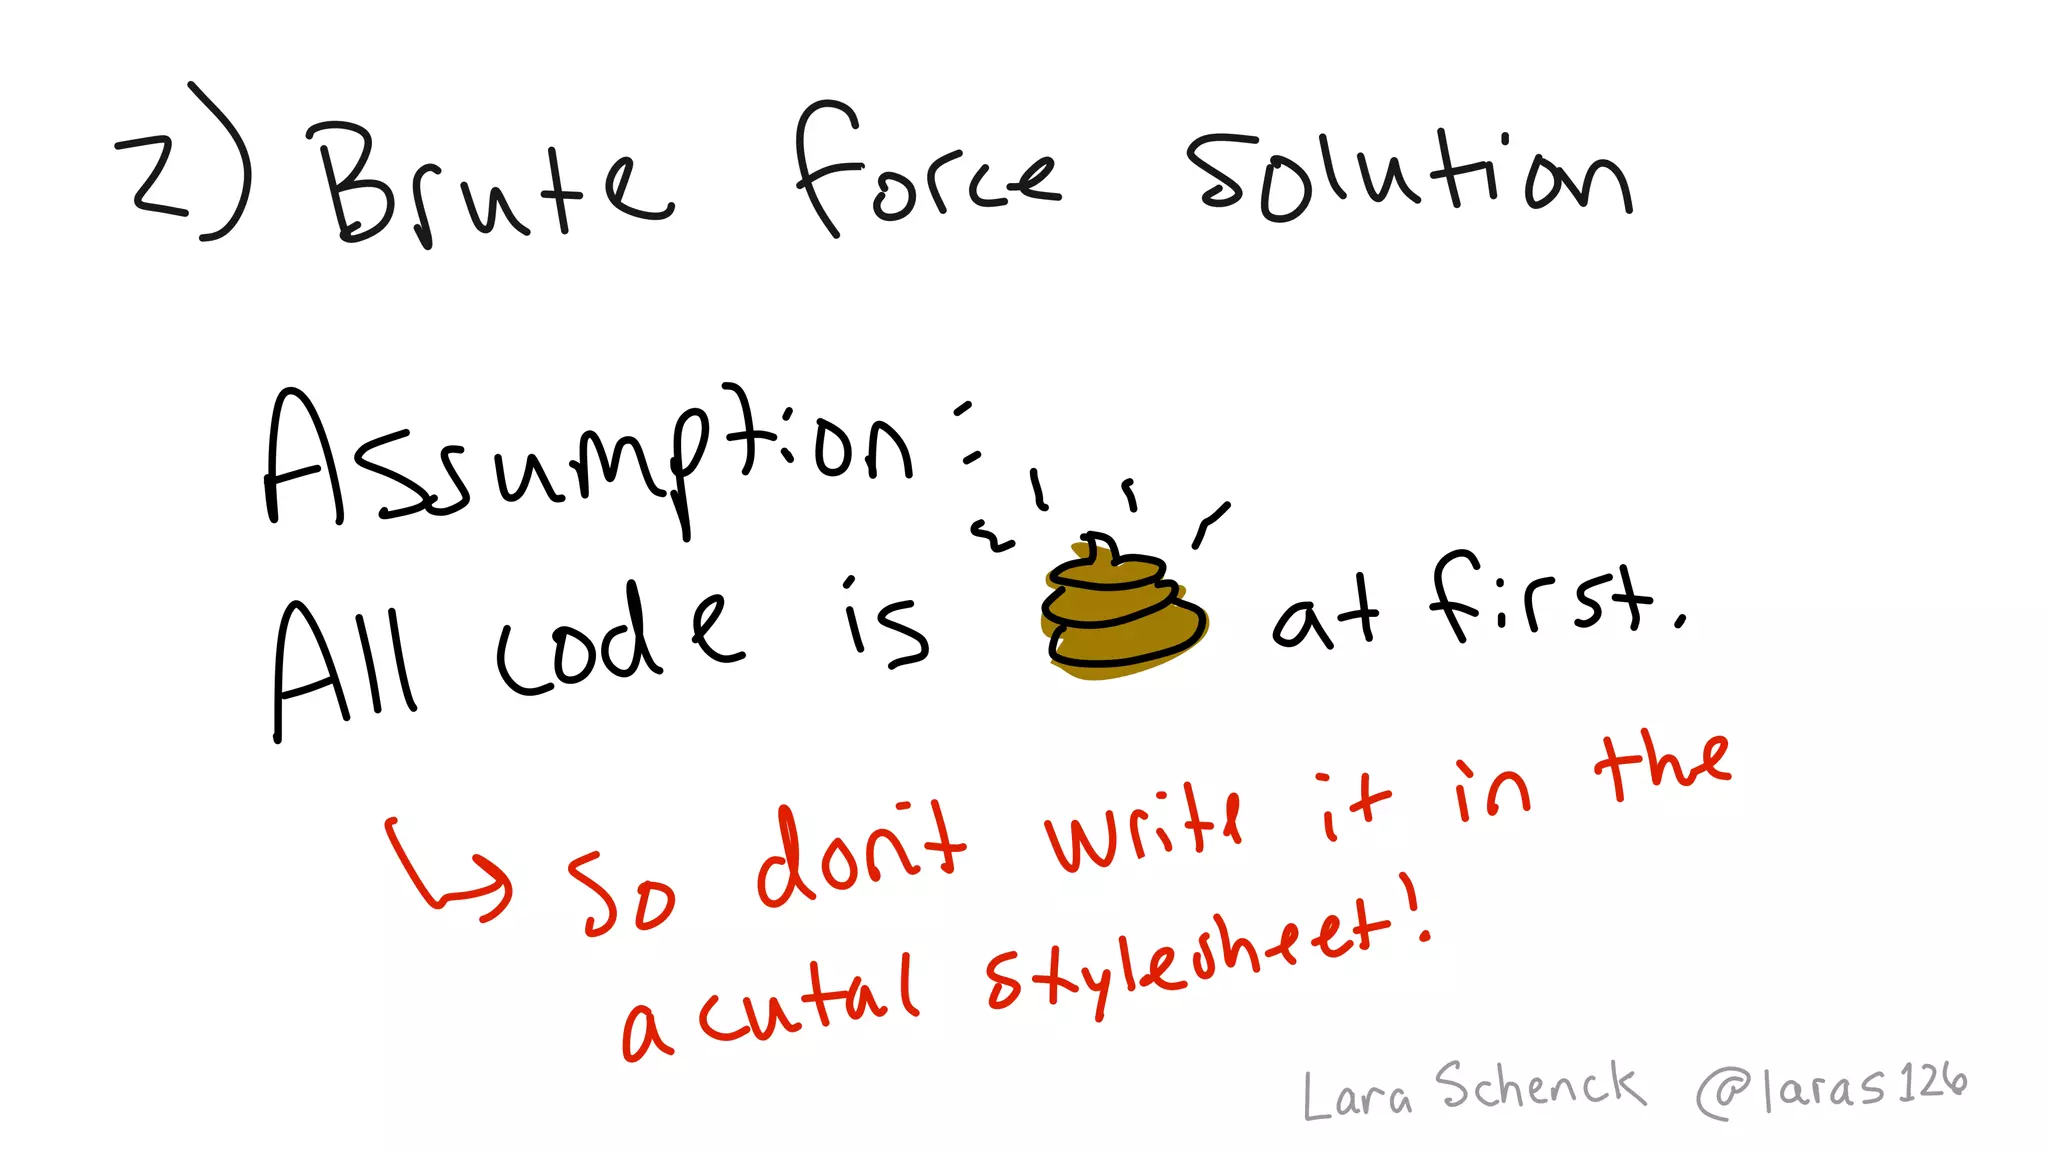 2) Brute force solution
Assumption:
All code is at first.
↳ so don't write it in the
acutal stylesheet!
Lara Schenck @laras126